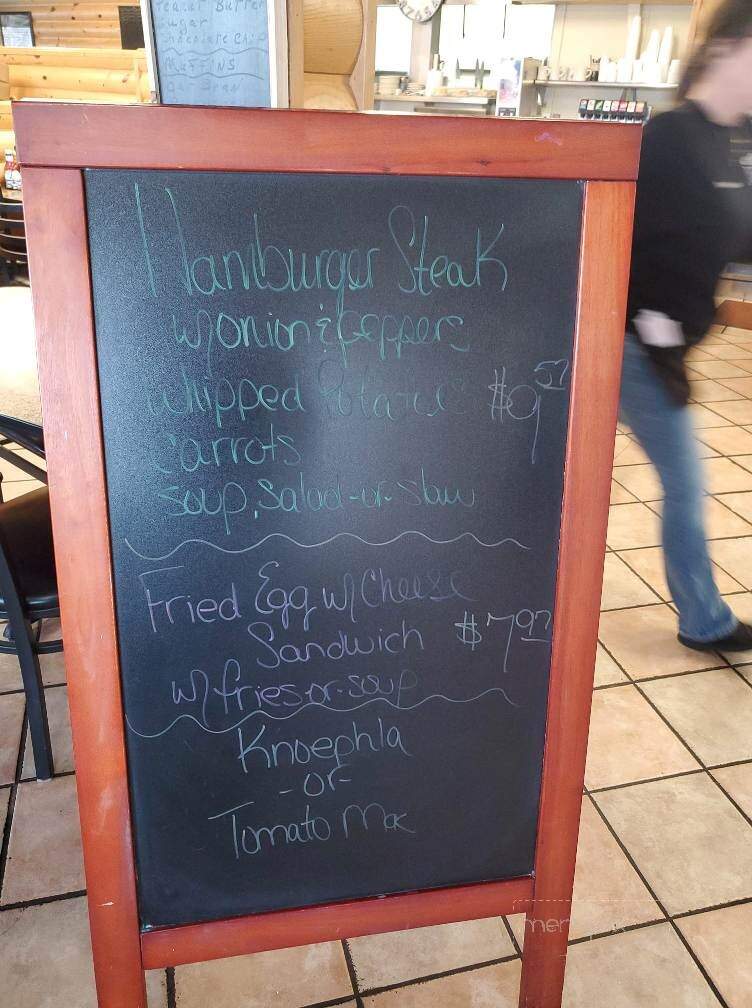 Peanut Butter
Sugar
Chocolate Chip
Muffins
Oat Bran
Hamburger Steak
w/onion & peppers
whipped Potatoes $9.57
carrots
soup, salad -or- slaw
Fried Egg w/ Cheese
Sandwich $7.97
w/ fries -or- soup
Knoephla
-or-
Tomato Mac